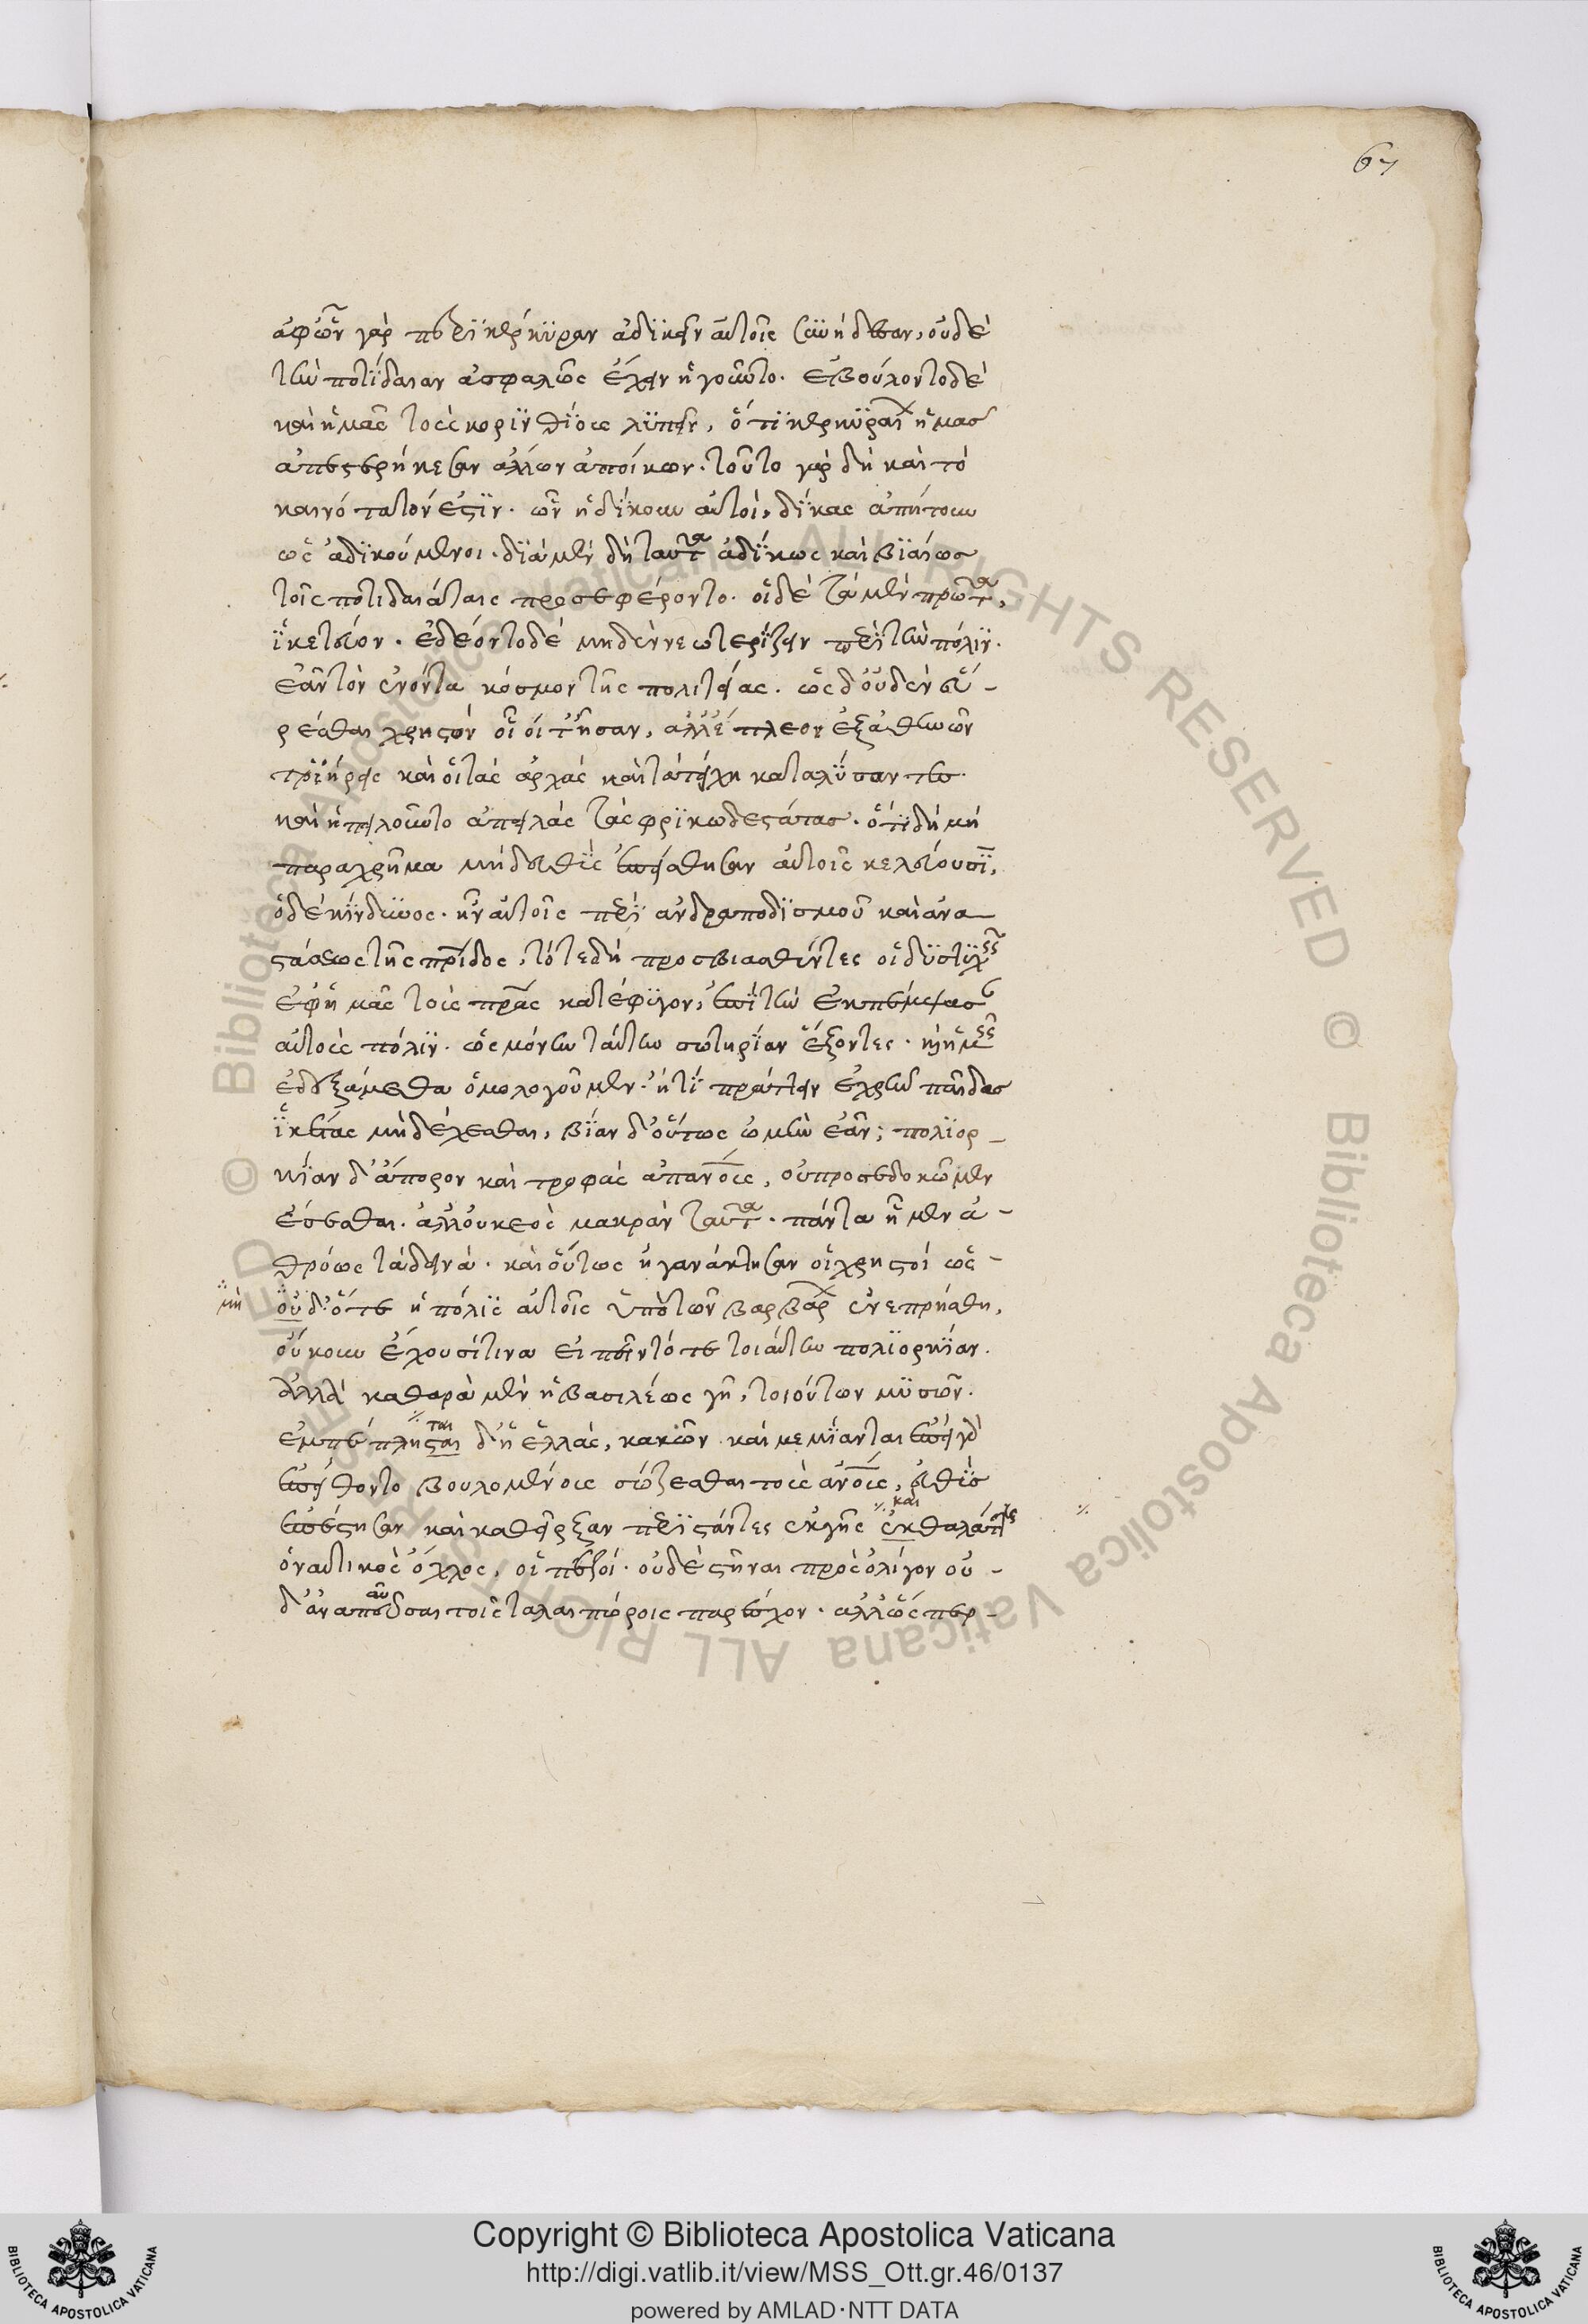 67
ἀφ' ὧν γὰρ περὶ κέρκυραν ἀδικεῖν αὐτοῖς συνήδεσαν, οὐδὲ
τὴν ποτίδαιαν ἀσφαλῶς ἔχειν ἡγοῦντο. ἐβούλοντο δὲ
καὶ ἡμᾶς τοὺς κορινθίους λυπεῖν, ὅτι κερκυραί ἡμᾶς
ἄλλων ἀποίκων. τοῦτο γὰρ δὴ καὶ τὸ
καινότατόν ἐστιν. ὧν ἠδίκουν αὐτοὶ, δίκας ἀπῄτουν
ὡς ἀδικούμενοι. διὰ μὲν δὴ ταῦτα ἀδίκως καὶ βιαίως
τοῖς ποτιδαιάταις προσεφέροντο. οἱ δὲ τὰ μὲν πρῶτα,
ἱκέτευον. ἐδέοντο δὲ μηδὲν νεωτερίζειν περὶ τὴν πόλιν.
ἐᾶν τὸν ὄντα κόσμον τῆς πολιτείας. ὡς δ' οὐδὲν εὕ-
ρεσθαι χρηστὸν οἷοί τ' ἦσαν, ἀλλ' ἔπλεον ἐξ ἀθηνῶν
τριήρεις καὶ οἱ τὰς ἀρχὰς καὶ τὰ τείχη καταλύσαντες
καὶ ἠπειλοῦντο ἀπειλὰς τὰς φρικωδεστάτας. ὅτι δὴ μὴ
παραχρῆμα μηδ' εὐθὺς ἐπείσθησαν αὐτοῖς κελεύουσιν,
ὁ δὲ κίνδυνος. ἦν αὐτοῖς περὶ ἀνδραποδισμοῦ καὶ ἀνα-
στάσεως τῆς πρίδος, τότε δὴ προσβιασθέντες οἱ δυστυχεῖς
ἐφ' ἡμᾶς τοὺς πρας κατέφυγον, ἐπὶ τὴν ἐκπέμψασ
αὐτοὺς πόλιν. ὡς μόνην ταύτην σωτηρίαν ἕξοντες. καὶ ἡμεῖς
ἐδεξάμεθα ὁμολογοῦμεν. ἢ τί πράττειν ἐχρῆν παῖδας
ἱκέτας μὴ δέχεσθαι, βίαν δ' οὕτως ὠμὴν ἐᾶν; πολιορ-
κίαν δ' ἄπορον καὶ τροφὰς ἀπανοις, οὐ προσεδοκῶμεν
ἔσεσθαι. ἀλλ' οὐκ εἰς μακρὰν ταῦτα. πάντα ἦμεν ἀ-
θρόως τὰ δεινά. καὶ οὕτως ἠγανάκτησαν οἱ χρηστοὶ ὡς-
μὴ
οὐδ' ὅτε ἡ πόλις αὐτοῖς ὑπὸ τῶν βαρβάρ ἐνεπρήσθη,
οὔκουν ἔχουσί τινα εἰπεῖν τότε τοιαύτην πολιορκίαν.
ἀλλὰ καθαρὰ μὲν ἡ βασιλέως γῆ, τοιούτων μυσῶν.
ται
ἐμπέπλησται δ' ἡ ἑλλὰς, κακῶν καὶ μεμίανται ἐπειδὴ
ἐπείθοντο βουλομένοις σώζεσθαι τοὺς ἀνοις, εὐθὺς
καὶ
ἐπέστησαν καὶ καθεῖρξαν περιστάντες ἐκ γῆς ἐκ θαλάττης
ὁ ναυτικὸς ὄχλος, οἱ πεζοί. οὐδὲ στῆναι πρὸς ὀλίγον οὐ-
αῦ
δ' ἀναπεῦσαι τοῖς ταλαιπώροις παρέσχον. ἀλλ' ὥσπερ-
Copyright © Biblioteca Apostolica Vaticana
http://digi.vatlib.it/view/MSS_Ott.gr.46/0137
powered by AMLAD·NTT DATA